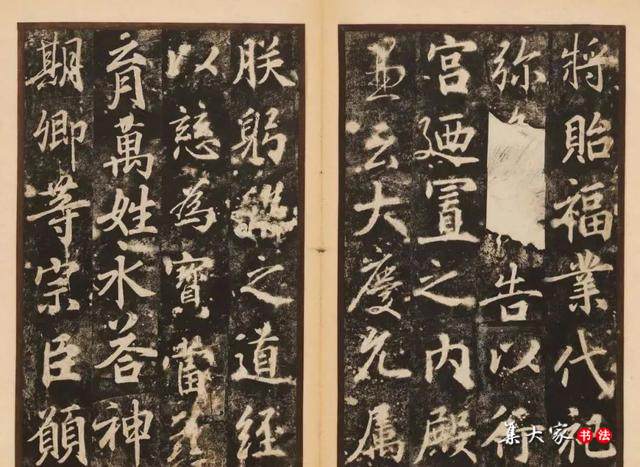 將貽福業代祀
弥 告以符
宮廼置之内殿
云大慶允属
朕躬之道經
以慈為寶當
育萬姓永荅神
期卿等宗臣願
集大家书法